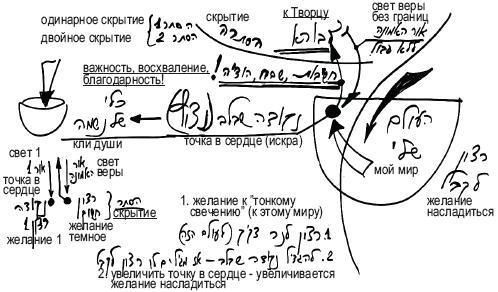 одинарное скрытие
двойное скрытие
הסתר 1
הסתר 2
скрытие
הסתרה
к Творцу
לבורא
свет веры
без границ
אור האמונה
ללא גבול
важность, восхваление,
благодарность!
! חשיבות, שבח, הודיה
כלי
של נשמה
кли души
נקודה שבלב (ניצוץ)
точка в сердце (искра)
העולם
שלי
мой мир
רצון
לקבל
желание
насладиться
свет 1
אור 1
אור האמונה
свет
веры
точка в
сердце
נקודה
רצון 1
желание 1
רצון
חשוך
желание
темное
הסתר
скрытие
1. желание к "тонкому
свечению" (к этому миру)
1. רצון לנר דקיק (לעולם הזה)
2. להגדיל נקודה שבלב - אז מגדילים לו רצון לקבל
2. увеличить точку в сердце - увеличивается
желание насладиться